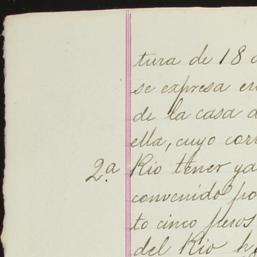 tura de 18 d
se expresa en
de la casa d
ella, cuyo corr
2.a Rio tener ya
convenido po
to cinco pesos
del Rio h